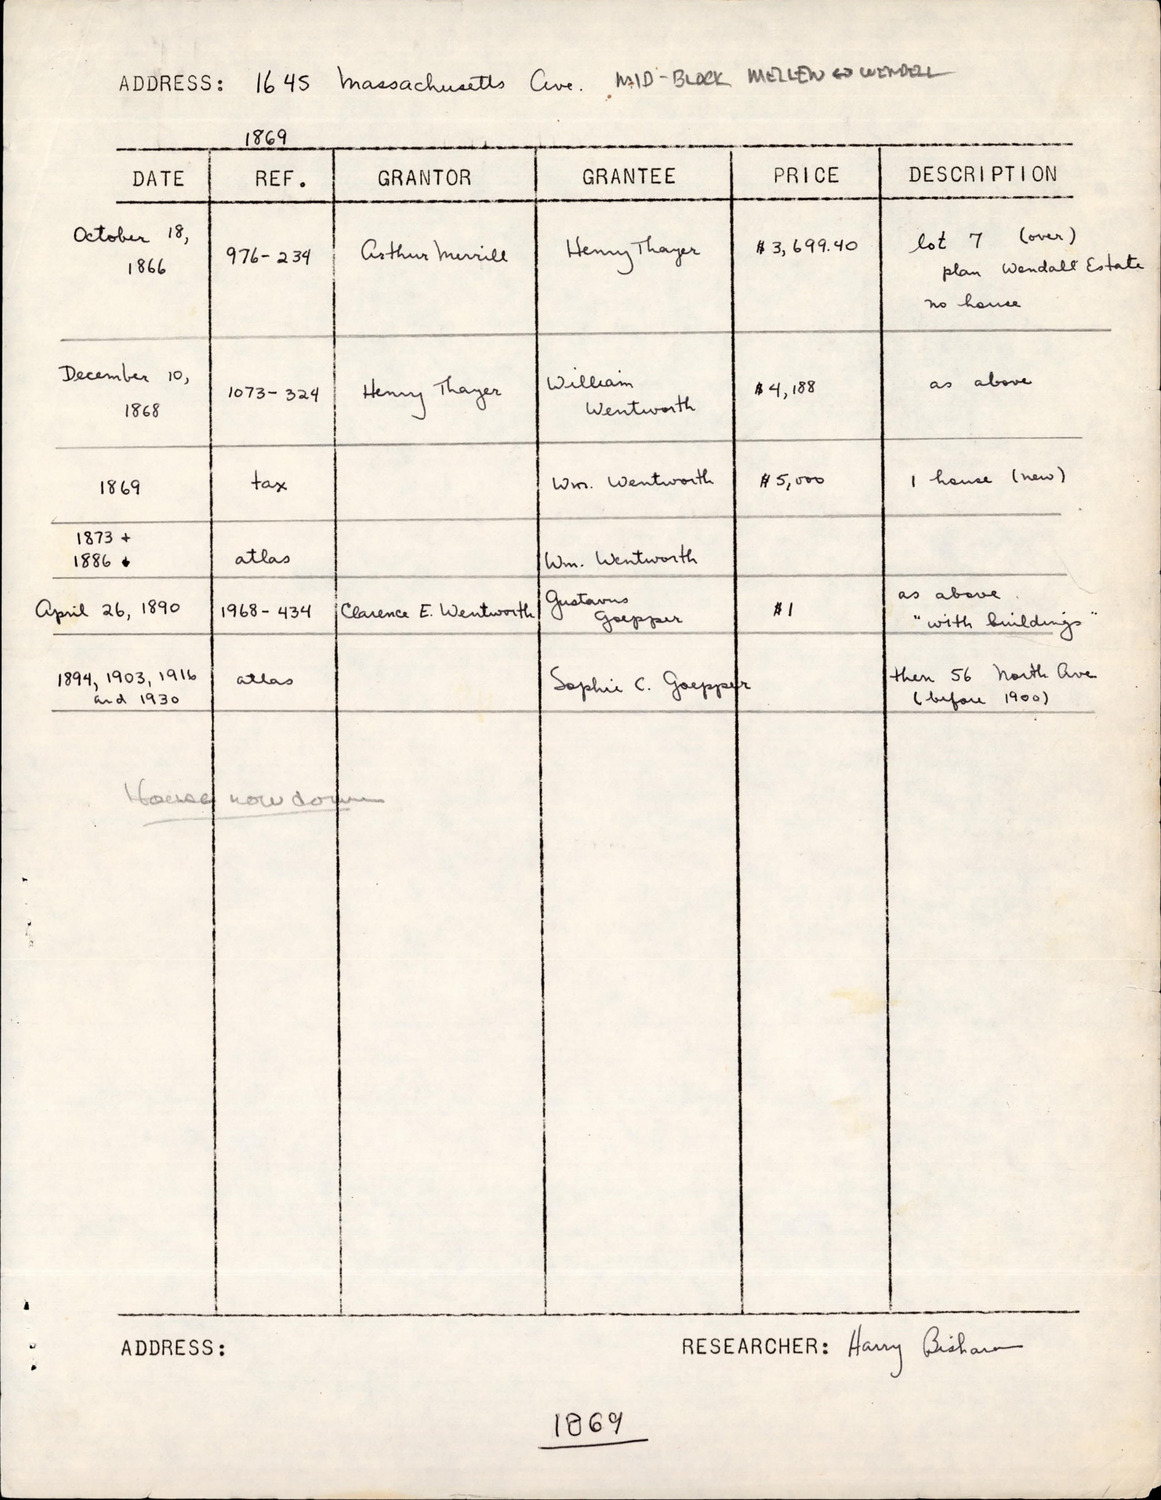 ADDRESS: 1645 Massachusetts Ave. MID-BLOCK MELLEN WENDELL
1869
DATE REF. GRANTOR GRANTEE PRICE DESCRIPTION
October 18, 1866 976-234 Arthur Merrill Henry Thayer $3,699.40 lot 7 (over)
plan Wendall Estate
no house
December 10, 1868 1073-324 Henry Thayer William Wentworth $4,188 as above
1869 tax Wm. Wentworth $5,000 1 house (new)
1873 +
1886 atlas Wm. Wentworth
April 26, 1890 1968-434 Clarence E. Wentworth Gustavus Goepper $1 as above
"with buildings"
1894, 1903, 1916 and 1930 atlas Sophie C. Goepper then 56 North Ave
(before 1900)
House now down
ADDRESS: RESEARCHER: Harry
1869